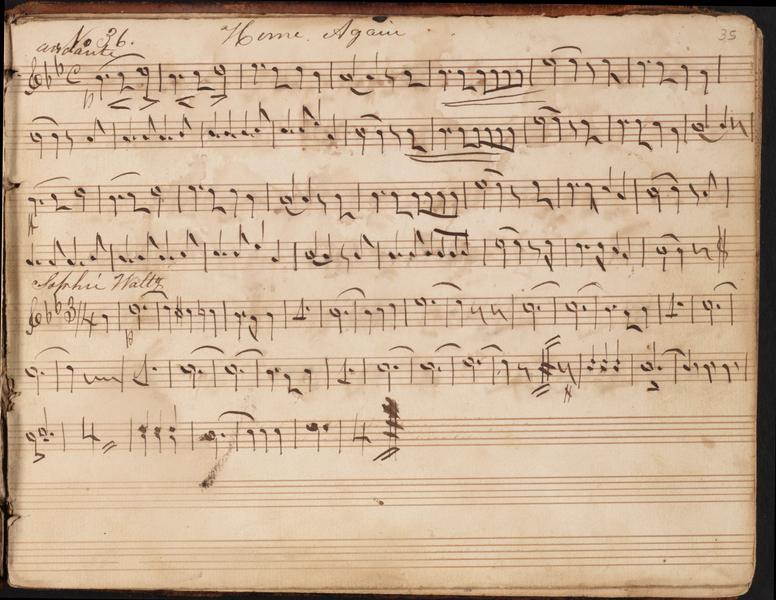 No. 36. Home Again 35
andante
p
Sophie Waltz
3/4
p